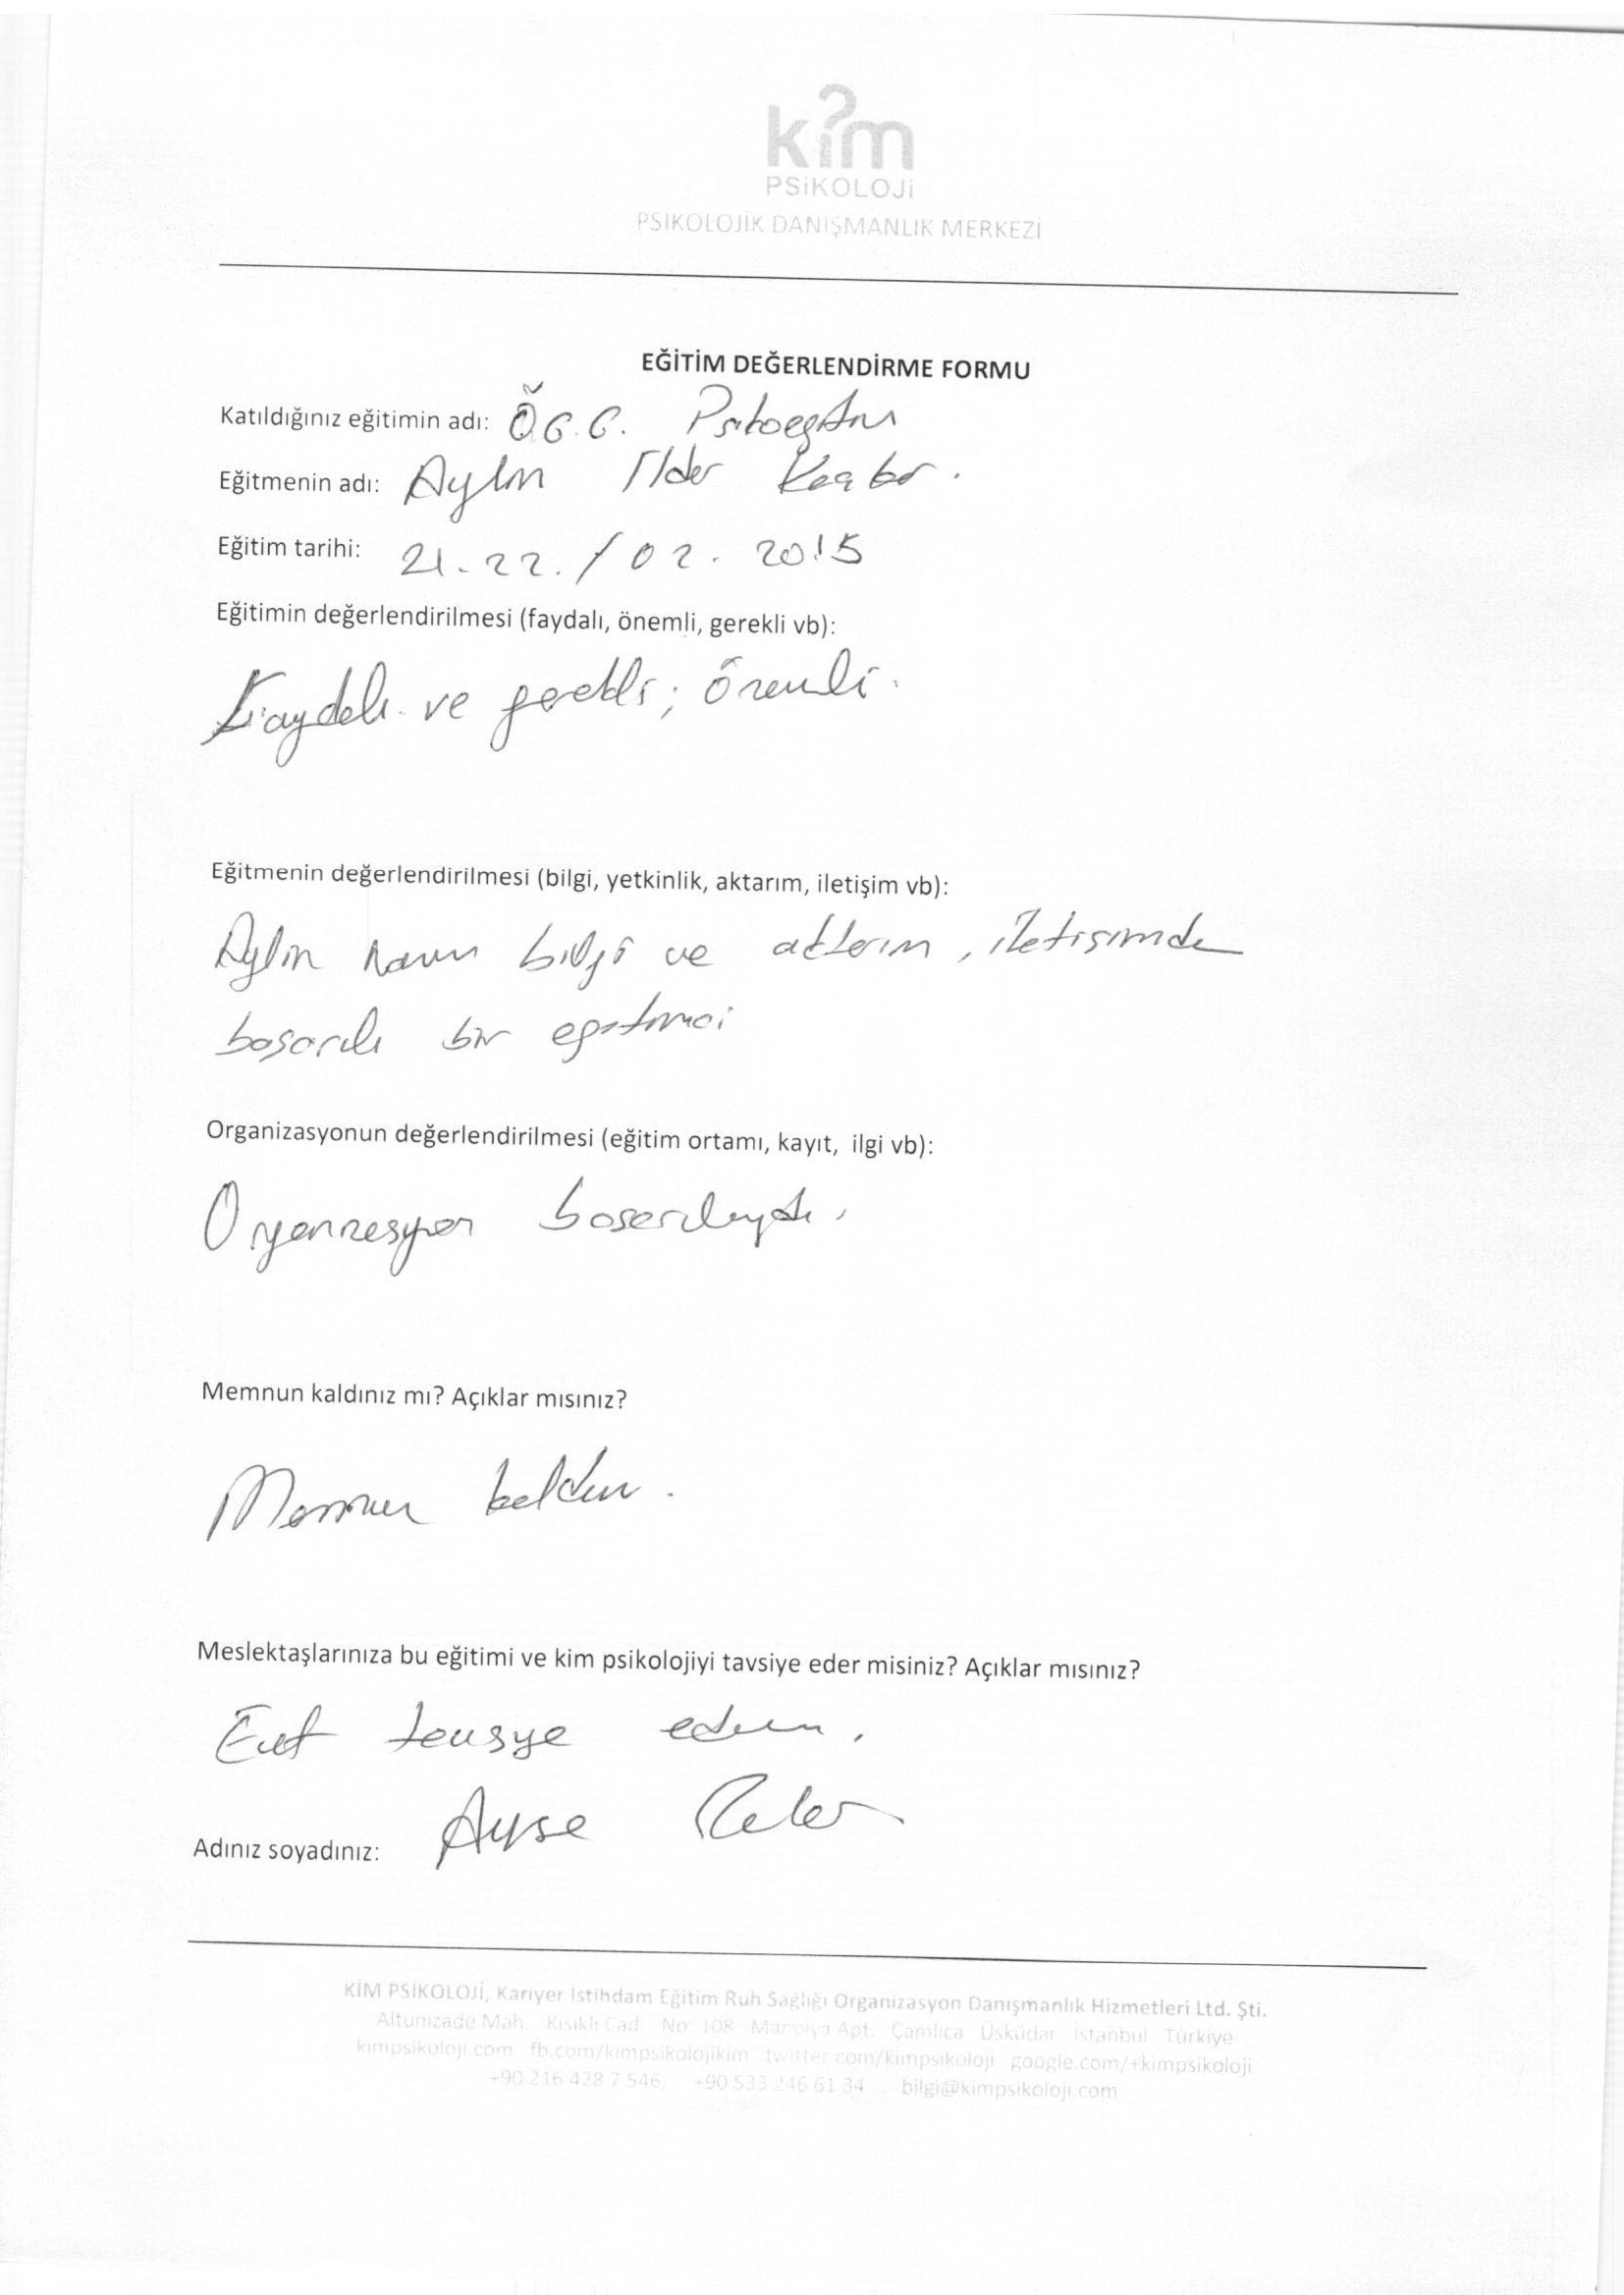 kim
PSiKOLOJi
PSİKOLOJİK DANIŞMANLIK MERKEZİ
EĞİTİM DEĞERLENDİRME FORMU
Katıldığınız eğitimin adı: Ö.G.G. Psikoeğitimi
Eğitmenin adı: Aylin İlder
Eğitim tarihi: 21-22./02.2015
Eğitimin değerlendirilmesi (faydalı, önemli, gerekli vb):
Faydalı ve gerekli; önemli.
Eğitmenin değerlendirilmesi (bilgi, yetkinlik, aktarım, iletişim vb):
Aylin hanım bilgi ve aktarım, iletişimde
başarılı bir eğitimci
Organizasyonun değerlendirilmesi (eğitim ortamı, kayıt, ilgi vb):
Organizasyon başarılıydı.
Memnun kaldınız mı? Açıklar mısınız?
Memnun kaldım.
Meslektaşlarınıza bu eğitimi ve kim psikolojiyi tavsiye eder misiniz? Açıklar mısınız?
Evet tavsiye ederim.
Adınız soyadınız: Ayşe
KİM PSİKOLOJİ, Kariyer İstihdam Eğitim Ruh Sağlığı Organizasyon Danışmanlık Hizmetleri Ltd. Şti.
Altunizade Mah. Kısıklı Cad No: 108 Manolya Apt. Çamlıca Üsküdar İstanbul Türkiye
kimpsikoloji.com fb.com/kimpsikolojikim twitter.com/kimpsikoloji google.com/+kimpsikoloji
+90 216 428 7 546, +90 533 246 61 34 bilgi@kimpsikoloji.com